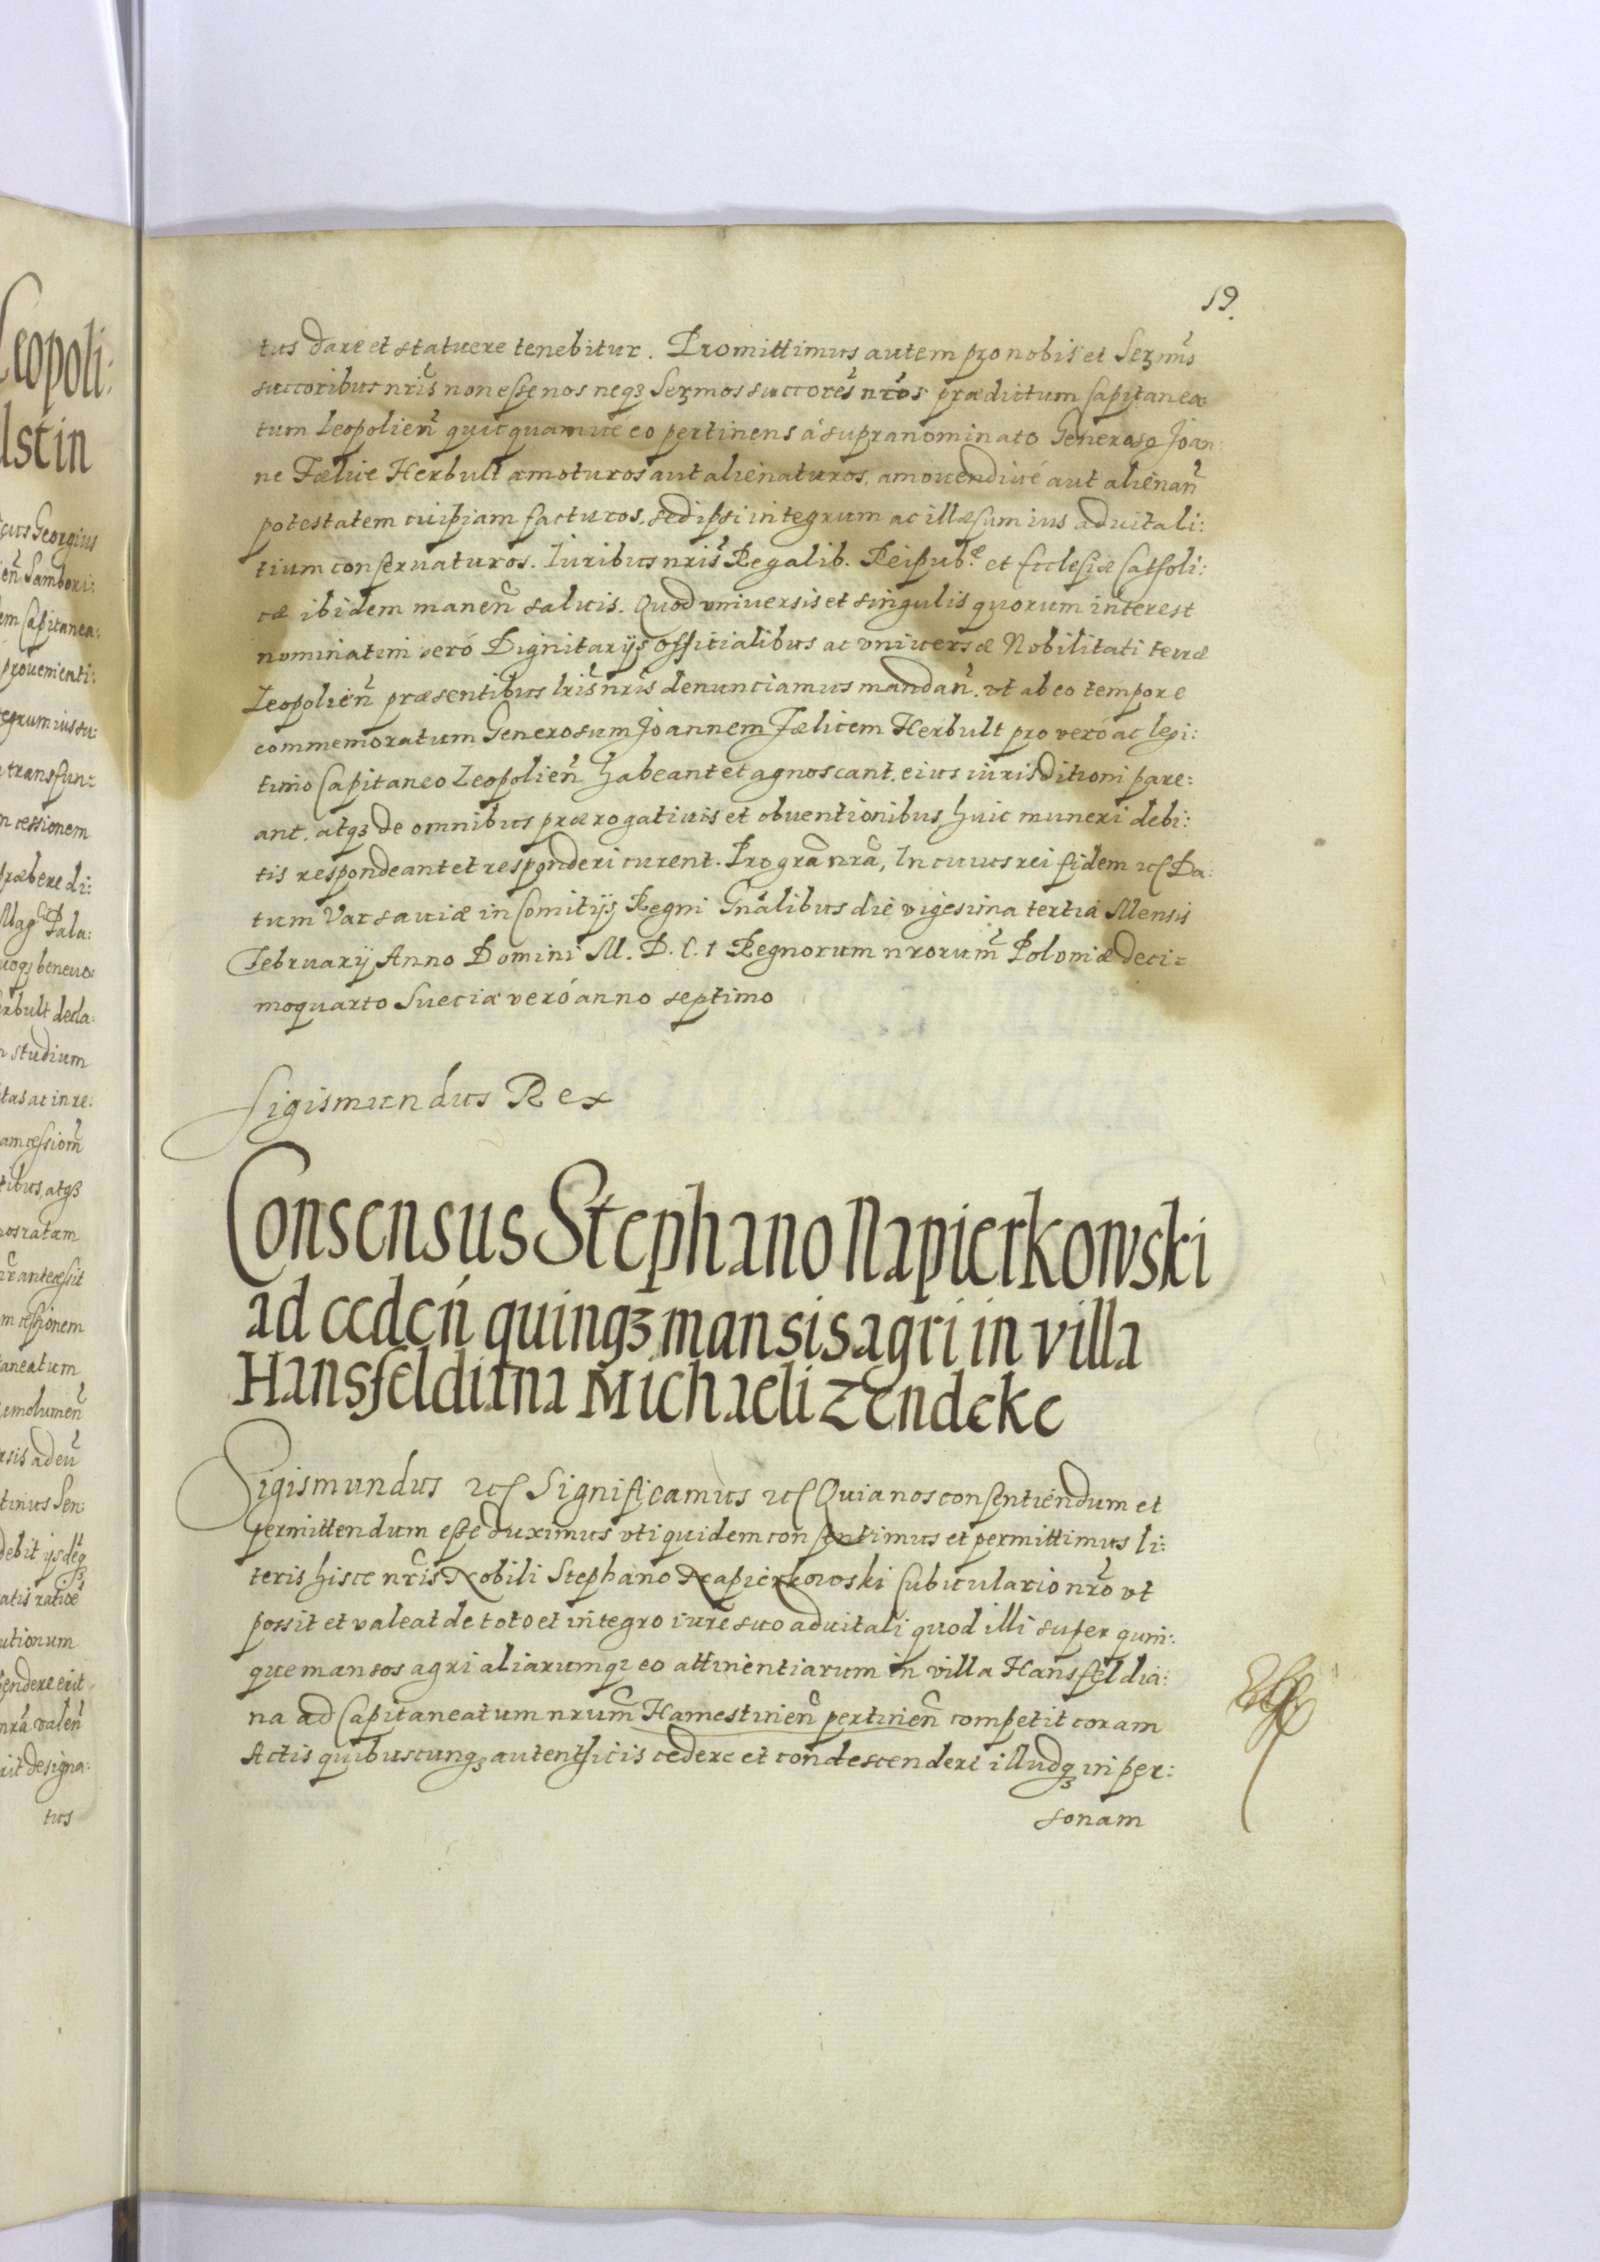 Leopoli:
lstin
cus Georgius
ień Sambori:
em Capitanea:
provenienti:
egrum ius su:
transfun:
n cessionem
præbere di:
Mag Pala:
uoqꝫ benevo:
erbult decla:
n studium
tas ac in re:
am cessioñ
tibus, atqꝫ
nos ratam
anteæssit
m cessionem
taneatum
emolumeñ
rsis ad eũ
tinus Sen:
debit ijsdeqꝫ
atis ratiõe
utionum
pendere erit
nrã valeñ
rit designa:
tus
19.
tus dare et statuere tenebitur. Promittimus autem pro nobis et Serm̃s
succoribus nr̃is non esse nos neqꝫ Sermos succorẽs nr̃os prædictum Capitanea
tum Leopolieñ quicquamue eo pertinens á supranominato Generoso Joan:
ne Fælice Herbult amoturos aut alienaturos, amouendiué aut alienañ
potestatem cuipiam facturos, sed ipsi integrum ac illæsum ius aduitali:
tium conseruaturos. Iuribus nr̃is Regalib. Reipub.ᵉ et Ecclesiæ Catholi:
cæ ibidem maneñ saluis. Quod vniuersis et singulis quorum interest
nominatim veró Dignitarijs officialibus ac vniuersæ Nobilitati terræ
Leopolieñ præsentibus lr̃is nr̃is denunciamus mandañ. vt ab eo tempore
commemoratum Generosum Joannem Fælicem Herbult pro veró ac legi:
timo Capitaneo Leopolieñ habeant et agnoscant, eius iurisditioni pare:
ant, atqꝫ de omnibus prærogatiuis et obuentionibus huic muneri debi:
tis respondeant et responderi curent. Pro grã nr̃a, In cuius rei fidem etc Da:
tum Varsauiæ in Comitijs Regni Gnãlibus die vigesima tertia Mensis
February Anno Domini M. D. C. 1 Regnorum nrorum̃ Poloniæ deci:
moquarto Sueciæ veró anno septimo
Sigismundus Rex
Consensus Stephano Napierkowski
ad cedeń quinqꝫ mansis agri in villa
Hansfeldiana Michaeli Zendeke
Sigismundus etc Significamus etc Quia nos consentiendum et
permittendum esse duximus vti quidem consentimus et permittimus li:
teris hisce nr̃is Nobili Stephano Napierkowski Cubiculario nr̃o vt
possit et valeat de toto et integro iure suo aduitali quod illi super quin:
que mansos agri aliarumqꝫ eo attinentiarum in villa Hansfeldia:
na ad Capitaneatum nrum̃ Hamestinieñ pertineñ competit coram
Actis quibuscunqꝫ autenthicis cedere et condescendere illudqꝫ in per:
sonam